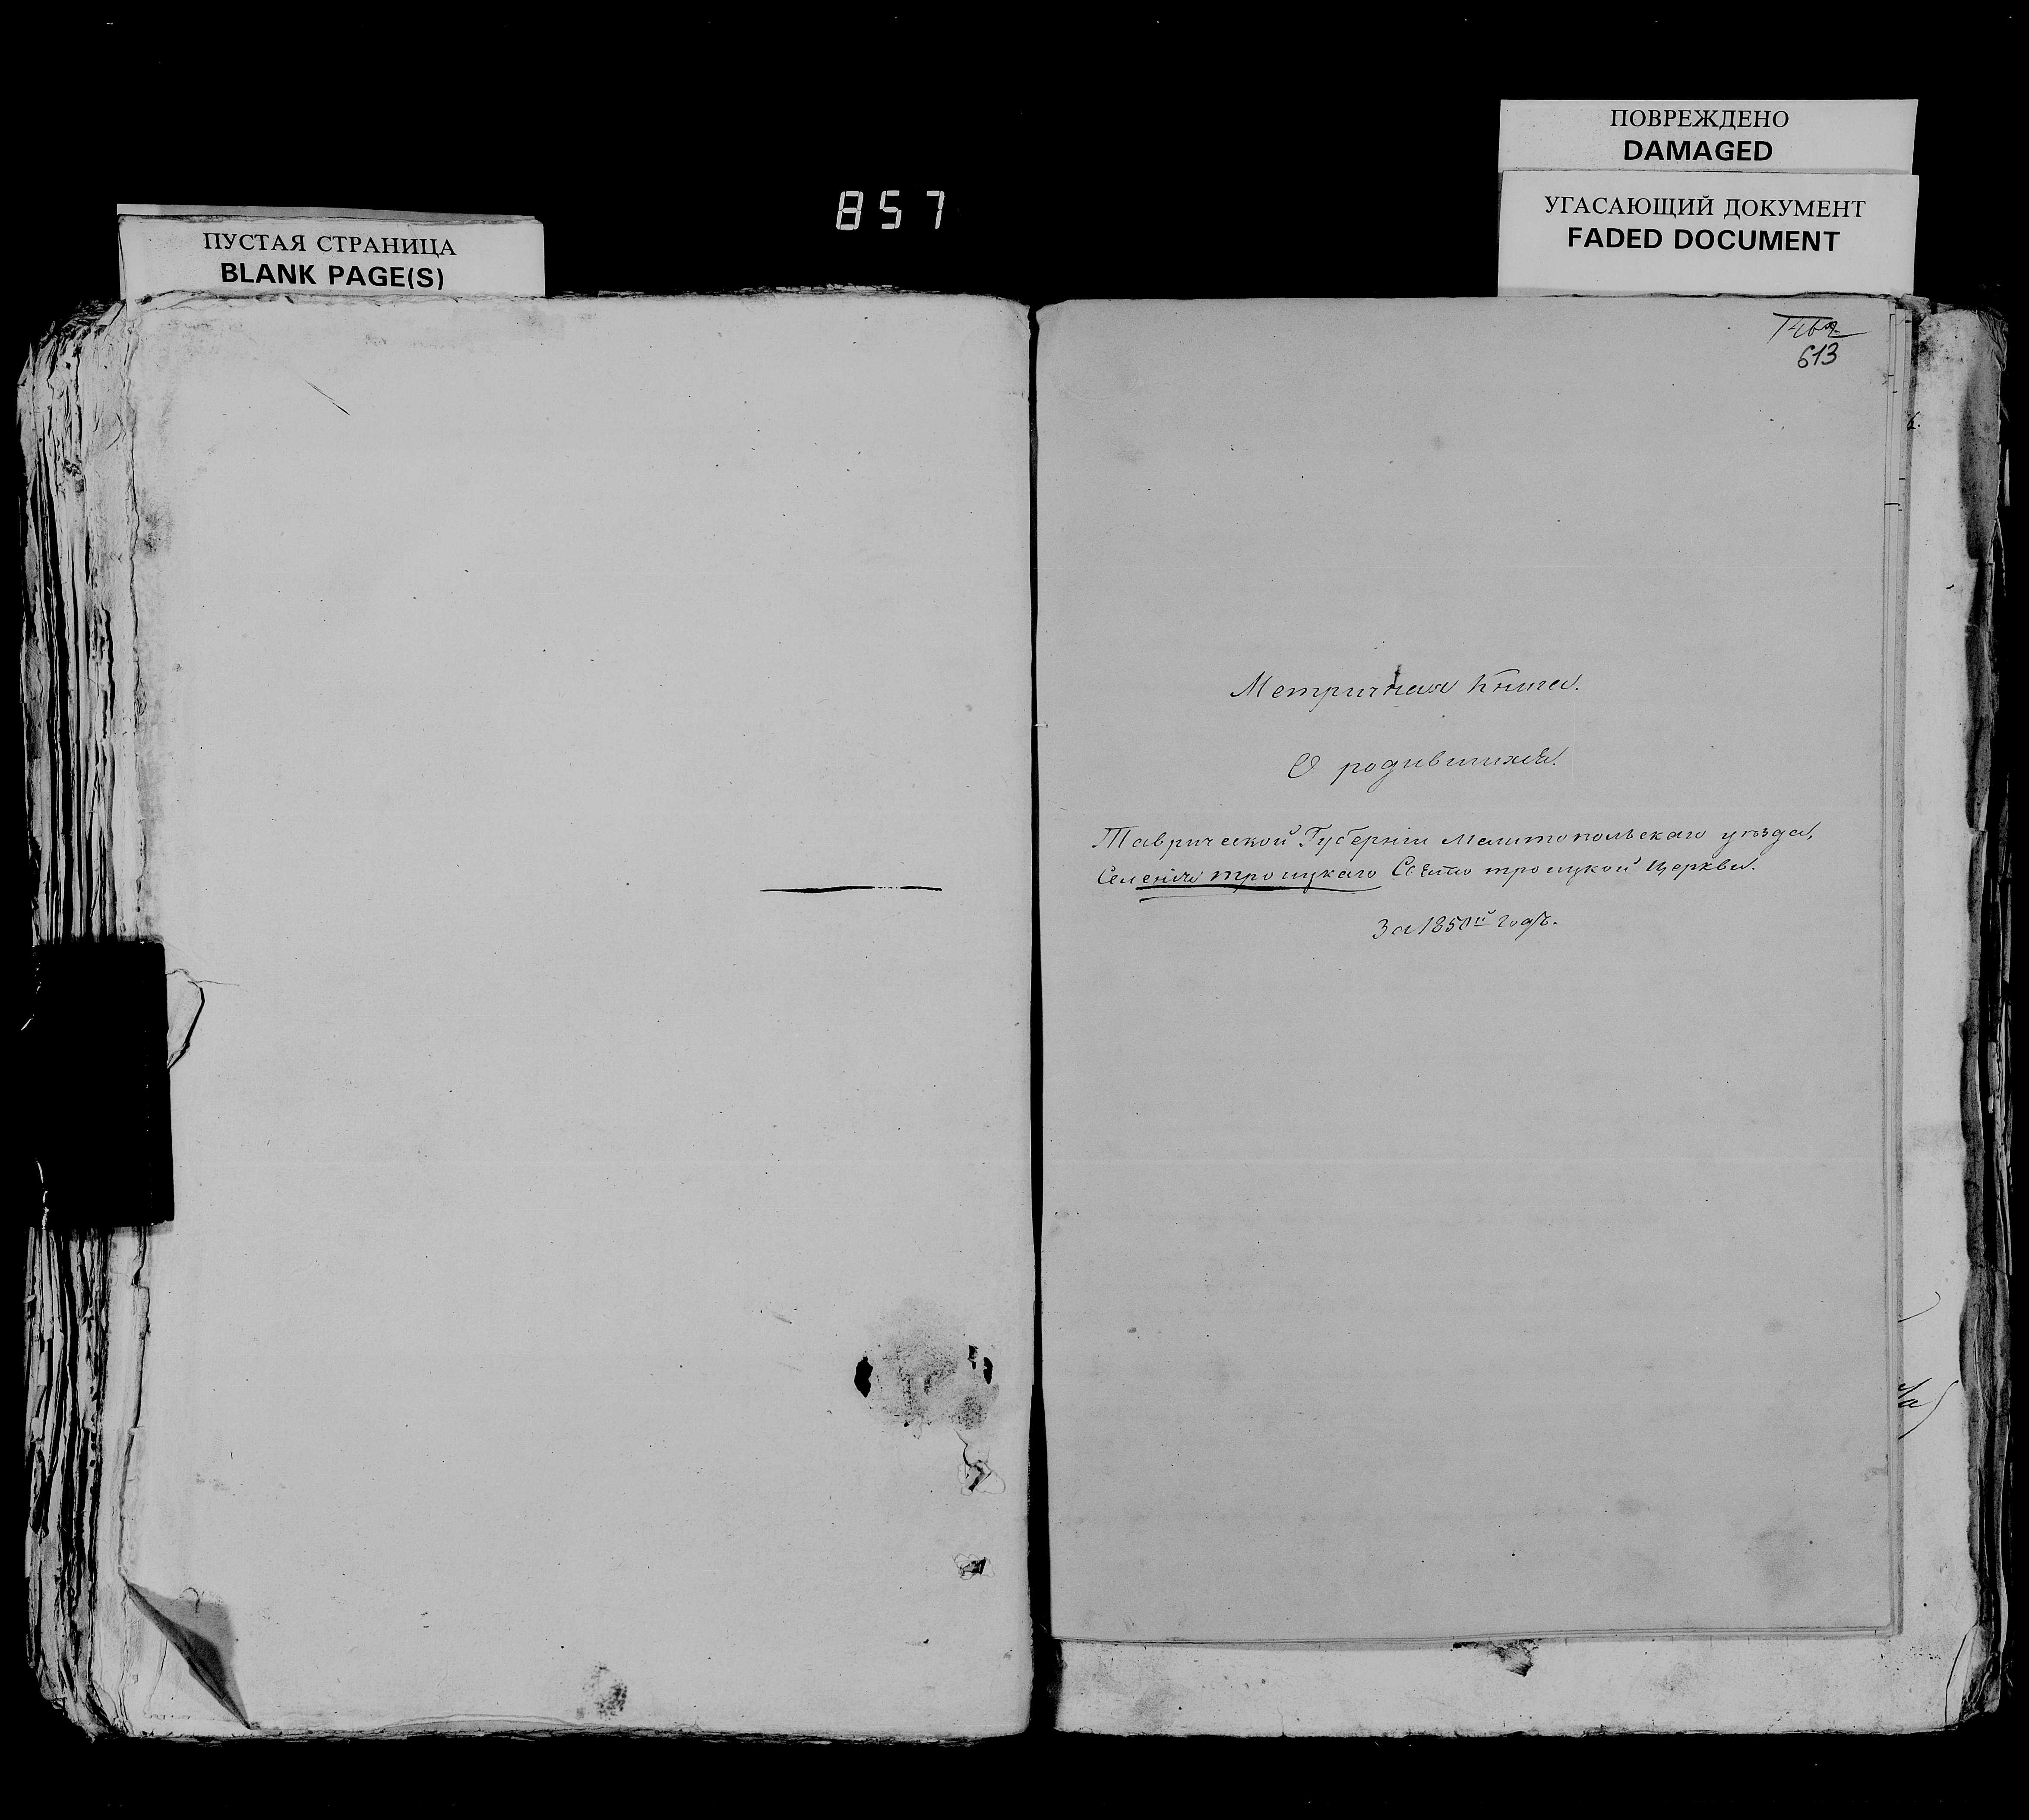 ПОВРЕЖДЕНО
DAMAGED
857
УГАСАЮЩИЙ ДОКУМЕНТ
FADED DOCUMENT
ПУСТАЯ СТРАНИЦА
BLANK PAGE(S)
613
Метричная Книга.
О родившихся.
Таврической Губерніи Мелитопольскаго уѣзда,
Селенія троицкаго Свято троицкой Церкви.
За 1850й годъ.